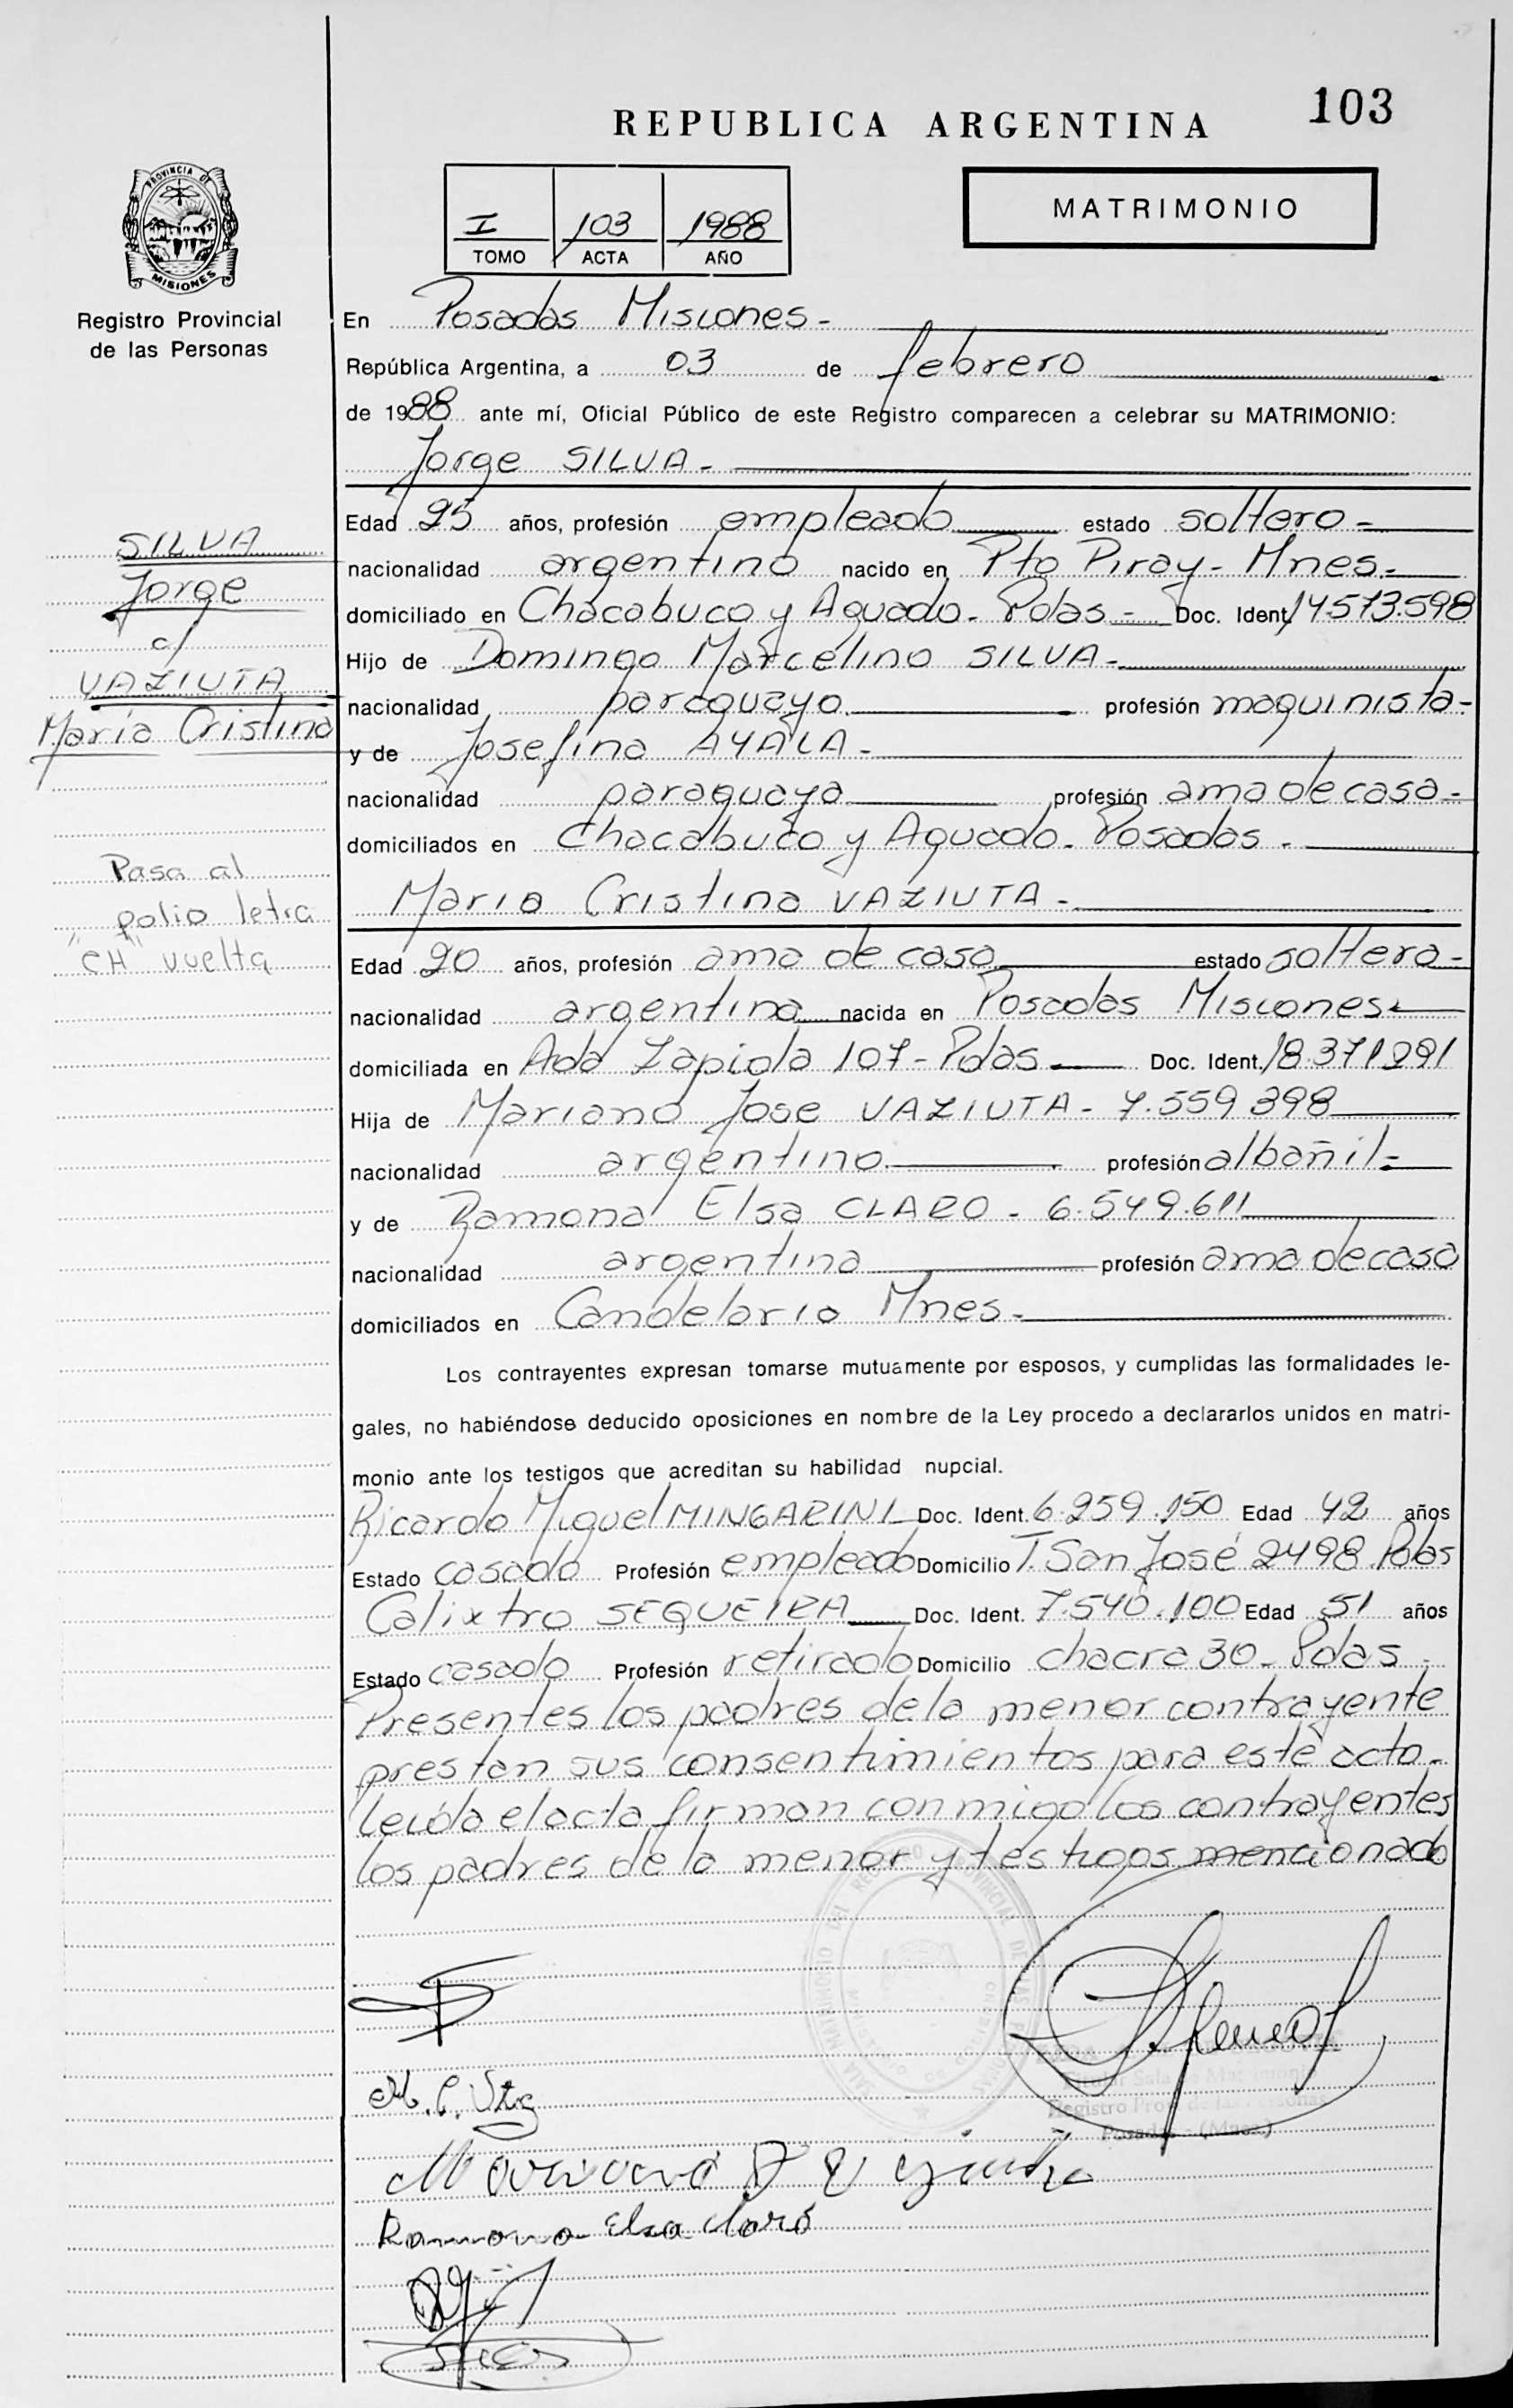 103
REPUBLICA ARGENTINA
MATRIMONIO
I 103 1988
TOMO ACTA AÑO
PROVINCIA DE
MISIONES
Registro Provincial
de las Personas
En Posadas Misiones -
República Argentina, a 03 de febrero
de 1988 ante mí, Oficial Público de este Registro comparecen a celebrar su MATRIMONIO:
Jorge SILVA -
SILVA
Jorge
c/
VAZIUTA
María Cristina
Pasa al
polio letra
"CH" vuelta
Edad 25 años, profesión empleado estado soltero -
nacionalidad argentino nacido en Pto Piray - Mnes -
domiciliado en Chacabuco y Aguado - Pdas - Doc. Ident 14573.598
Hijo de Domingo Marcelino SILVA -
nacionalidad paraguayo profesión maquinista -
y de Josefina AYALA -
nacionalidad paraguaya profesión ama de casa -
domiciliados en Chacabuco y Aguado - Posadas -
Maria Cristina VAZIUTA -
Edad 20 años, profesión ama de casa estado soltera -
nacionalidad argentina nacida en Posadas Misiones -
domiciliada en Ada Zapiola 107 - Pdas Doc. Ident. 18.371291
Hija de Mariano Jose VAZIUTA - 7.559398
nacionalidad argentino profesión albañil -
y de Ramona Elsa CLARO - 6.549.611
nacionalidad argentina profesión ama de casa
domiciliados en Candelaria Mnes -
Los contrayentes expresan tomarse mutuamente por esposos, y cumplidas las formalidades le-
gales, no habiéndose deducido oposiciones en nombre de la Ley procedo a declararlos unidos en matri-
monio ante los testigos que acreditan su habilidad nupcial.
Ricardo Miguel MINGARINI Doc. Ident. 6.259.150 Edad 42 años
Estado casado Profesión empleado Domicilio T. San José 2498 Pdas
Calixtro SEQUEIRA Doc. Ident. 7.540.100 Edad 51 años
Estado casado Profesión retirado Domicilio chacra 30 - Pdas -
Presentes los padres de la menor contrayente
prestan sus consentimientos para este acto -
leida el acta firman conmigo los contrayentes
los padres de la menor y testigos mencionado
Titular Sala de Matrimonio
Registro Prov. de las Personas
Posadas - (Mnes.)
Ramona Elsa Claro